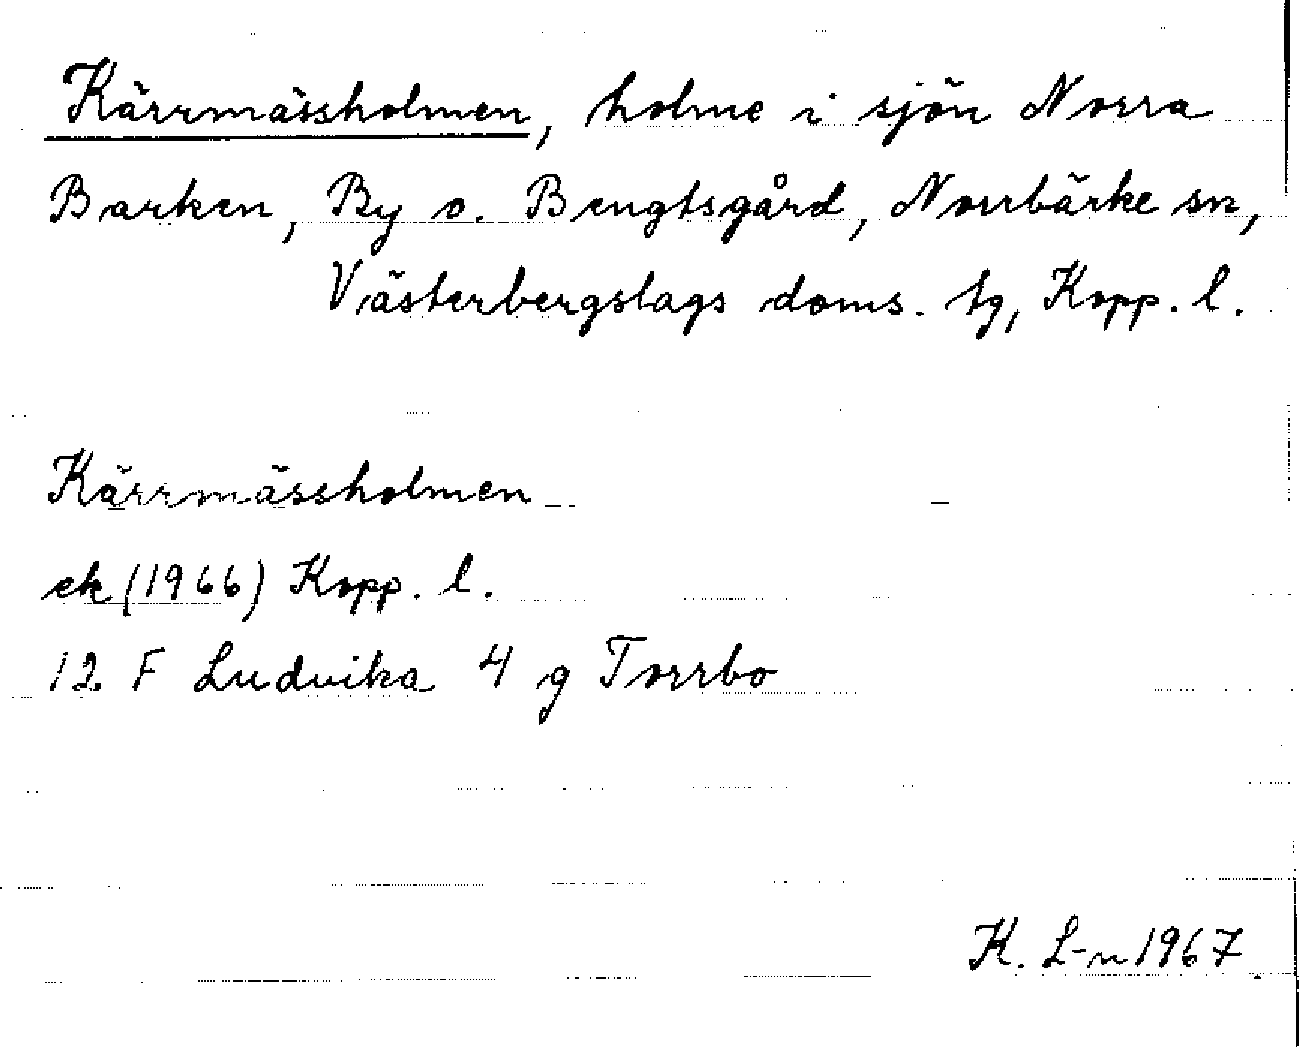 Kärrmässholmen, holme i sjön Norra
Barken, By o. Bengtsgård, Norrbärke sn,
Västerbergslags doms. tg, Kopp. l.
Kärrmässholmen
ek (1966) Kopp. l.
12 F Ludvika 4 g Torrbo
K. L-n 1967